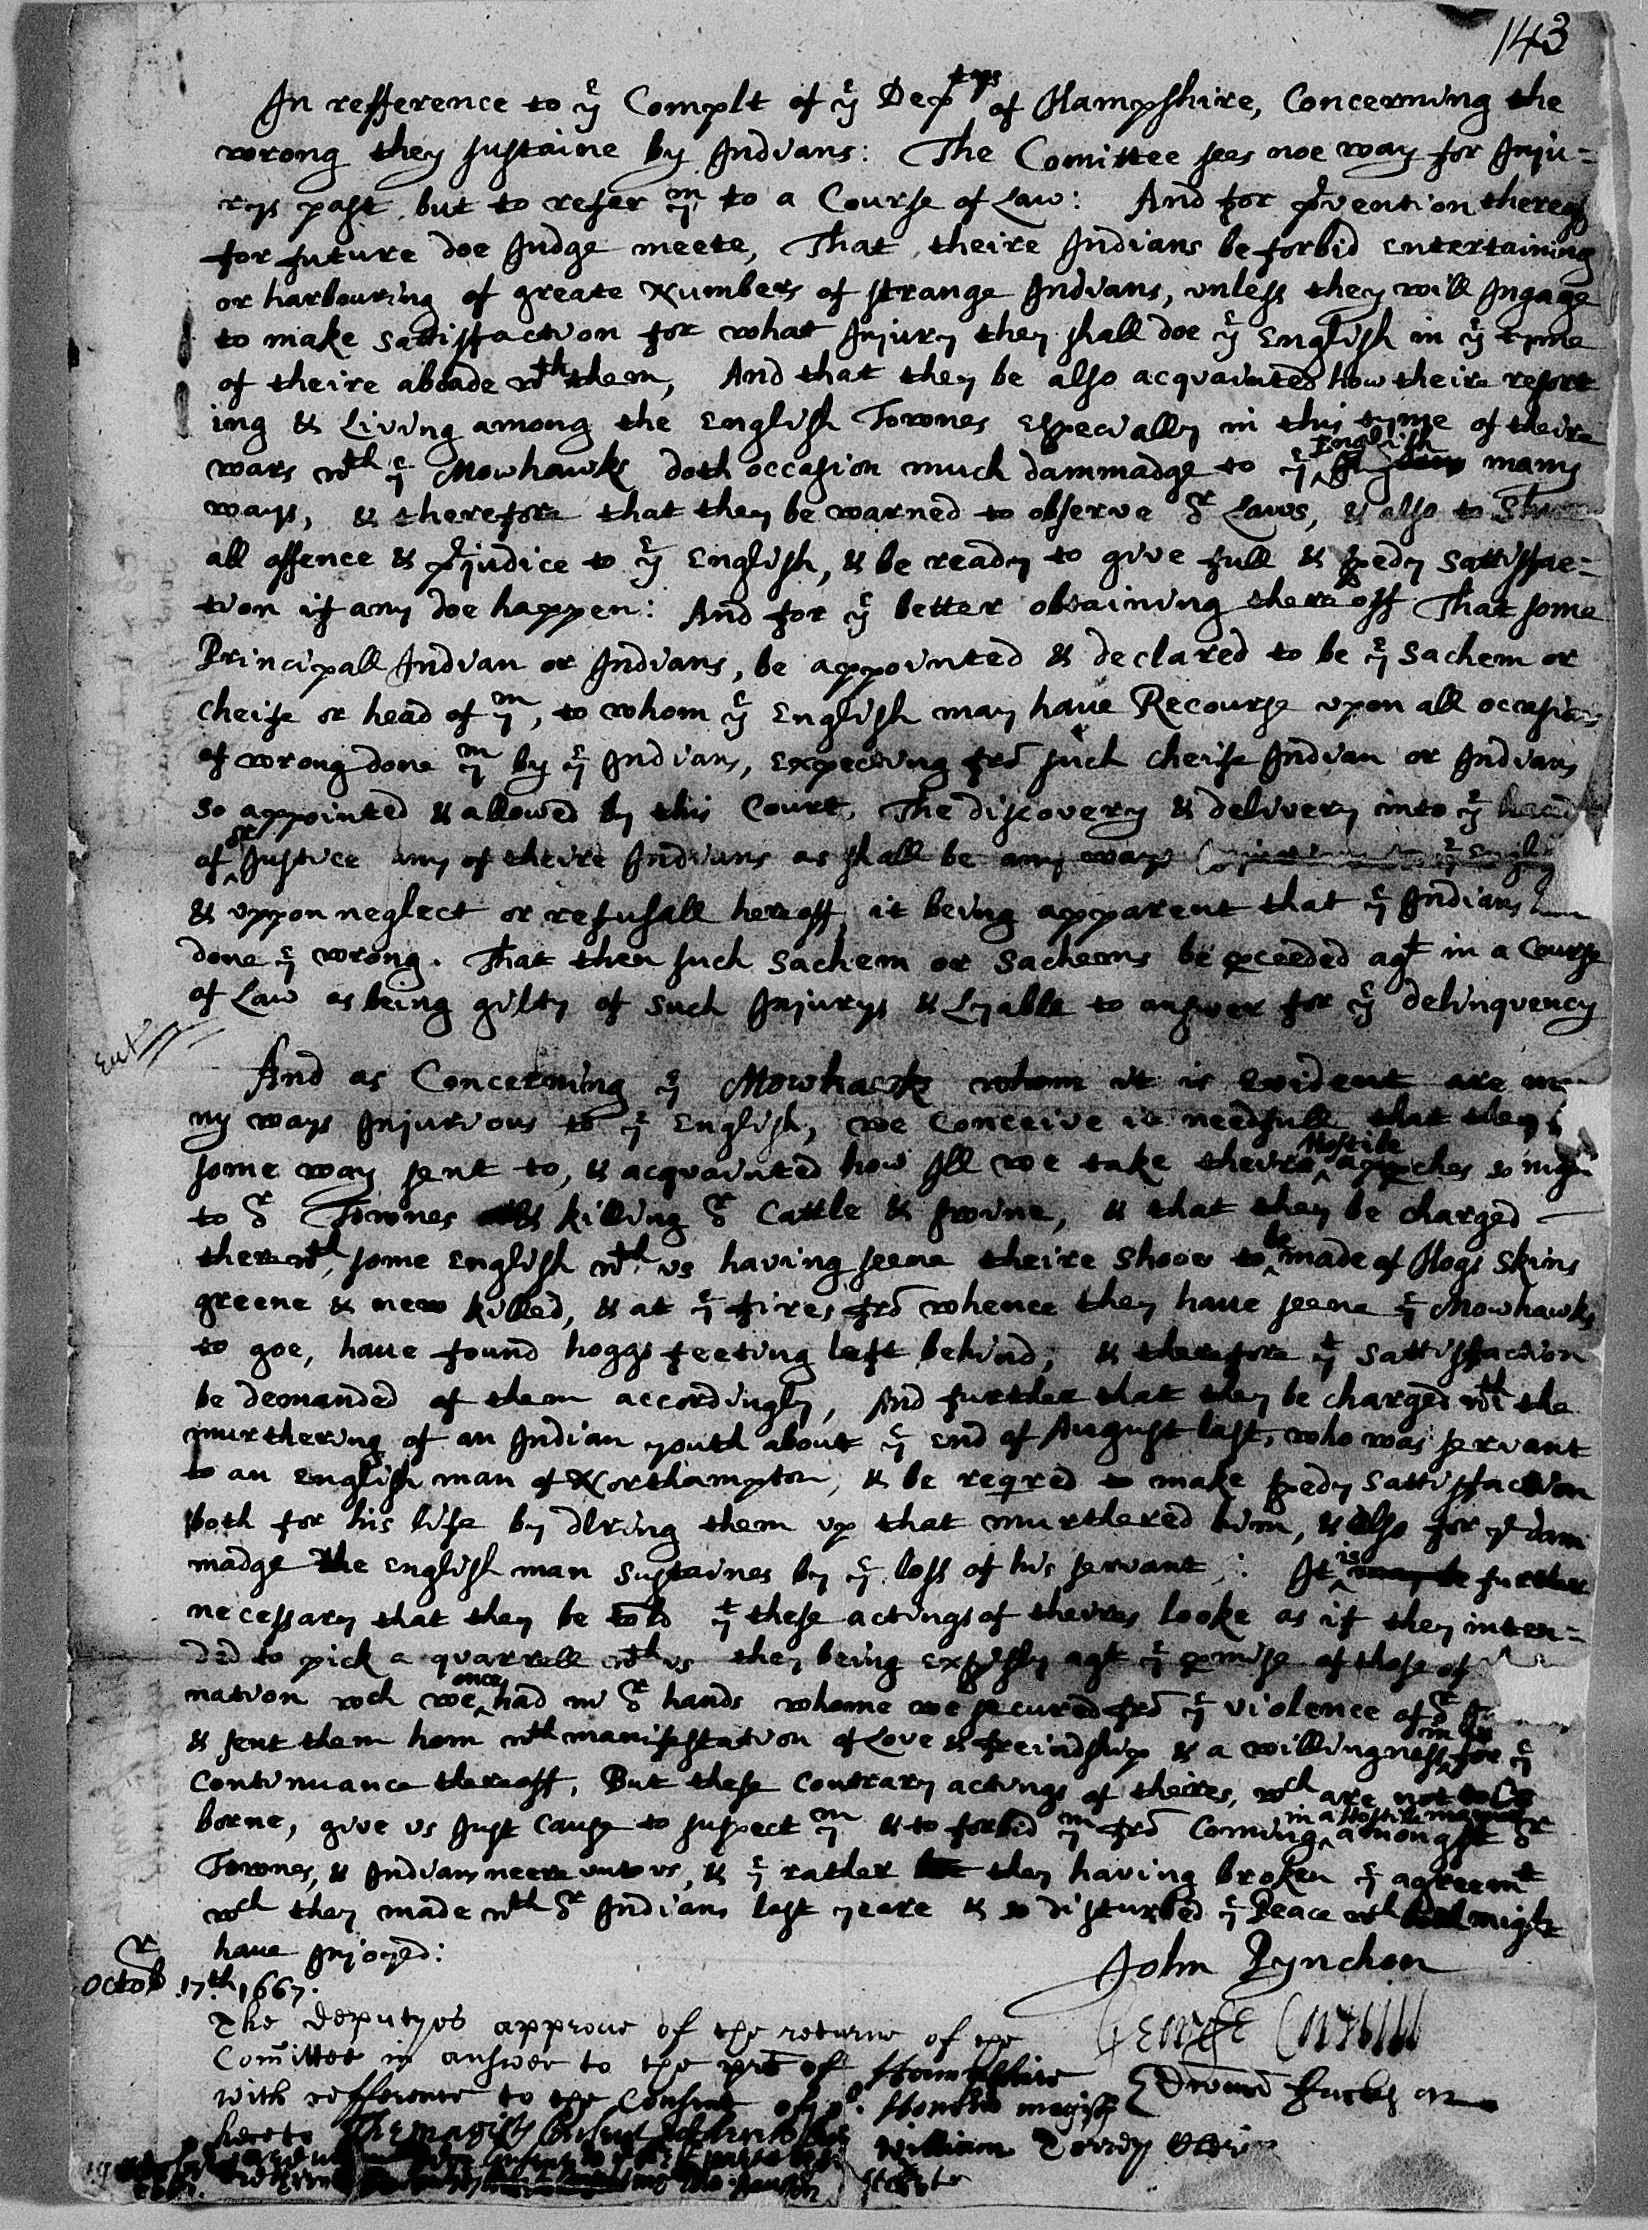 143
In refference to ye Complt of ye Deptyes of Hampshire, Concerning the
wrong they sustaine by Indians: The Comittee sees noe way for Inju=
rys past, but to refer ym to a Course of Law: And for prvention thereof
for future doe Judge meete, That theire Indians be forbid entertaining
or harbouring of greate Numbers of strange Indians, unless they will Ingage
to make sattisfaction for what Injury they shall doe ye English in ye tyme
of theire aboade wth them, And that they be also acquainted how theire resort
ing & Living among the English Townes especially in this tyme of theire
wars wth ye Mowhawks doth occasion much dammadge to ye English many
ways, & therefore that they be warned to observe or Laws, & also to
all offence & prjudice to ye English, & be ready to give full & spedy sattisfac=
tion if any doe happen: And for ye better obtaining thereoff That some
Principall Indian or Indians, be appointed & declared to be ye Sachem or
cheife or head of ym, to whom ye English may have Recourse vpon all occasions
of wrong done ym by ye Indians, expecting fro such cheife Indian or Indians
so appointed & allowed by this Court, The discovery & delivery into ye hand
of or Justice any of theire Indians as shall be any ways ye
& vppon neglect or refusall hereoff, it being apparent that ye Indians
done ye wrong. That then such Sachem or Sachems be pceeded agt in a Course
of Law as being gilty of such Injurys & Lyable to answer for ye delinquency
Ent
And as Concerning ye Mowhacks whom it is Evident are ma
ny ways Injurious to ye English, we Conceive it needfull that they
some way sent to, & acquainted how Ill we take theire Hostile apprches so nigh
to or Townes & killing or Cattle & swine, & that they be charged
therewth, some English wth us having seene theire shooes to be made of Hogs skins
greene & new killed, & at ye fires fro whence they have seene ye Mowhawks
to goe, have found hoggs feeting left behind; & therefore yt Sattisfaction
be demanded of them accordingly, And further that they be charged wth the
murthering of an Indian youth about ye end of August last, who was servant
to an English man of Northampton, & be reqred to make spedy Sattisfaction
both for his life by dlring them vp that murthered him, & also for ye dam
madge the English man sustaines by ye loss of his servant: It is further
necessary that they be told yt these actings of theires looke as if they inten=
ded to pick a quarrell wth us they being expresly agt ye pmise of those of
nation wch we once had in or hands whome we secured fro ye violence of or
& sent them hom wth manifestation of Love & freindship & a willingness in us for ye
Continuance thereoff, But these Contrary actings of theires, wch are not to be
borne, give us Just Cause to suspect ym & to forbid ym fro Coming in a Hostile manner amongst or
Townes, & Indians neere unto us, & ye rather they having broken ye agreemt
wch they made wth or Indians last yeare & so disturbed ye Peace wch might
have Injoyed:
John Pynchon
Octobr 17th 1667.
George Corwin
The deputyes approve of the returne of the
Comittee in answer to the of Hampshire
with refference to the Consent of or Honord magists
hereto
William Torrey Cleric
The magists Consent